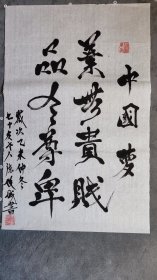 中國夢
業無貴賤
品分尊卑
歲次乙未仲冬
七十叟
書